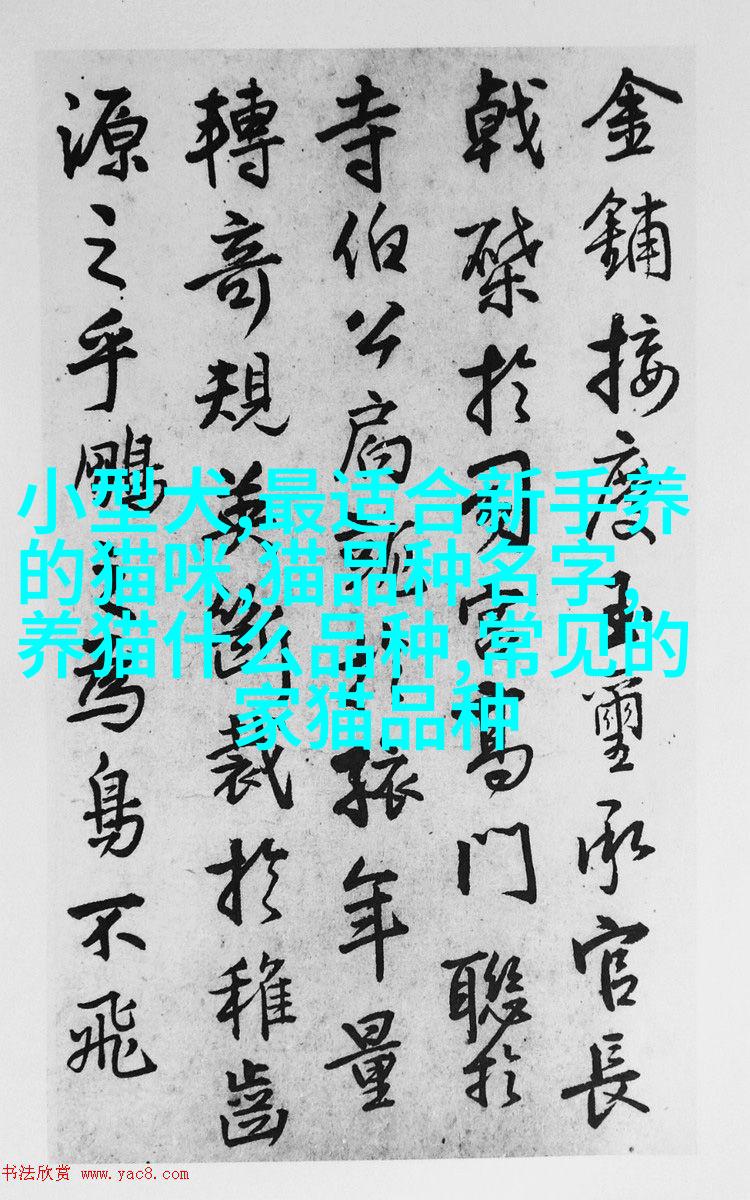 金鋪接慶玉璽承官長
戟棨於司宮高門聯於
寺伯公扃 孫年量
轉奇規 斷裁於稚齒
源之乎鵬之為鳥不飛
小型犬,最适合新手养
的猫咪,猫品种名字,
养猫什么品种,常见的
家猫品种
书法欣赏 www.yac8.com